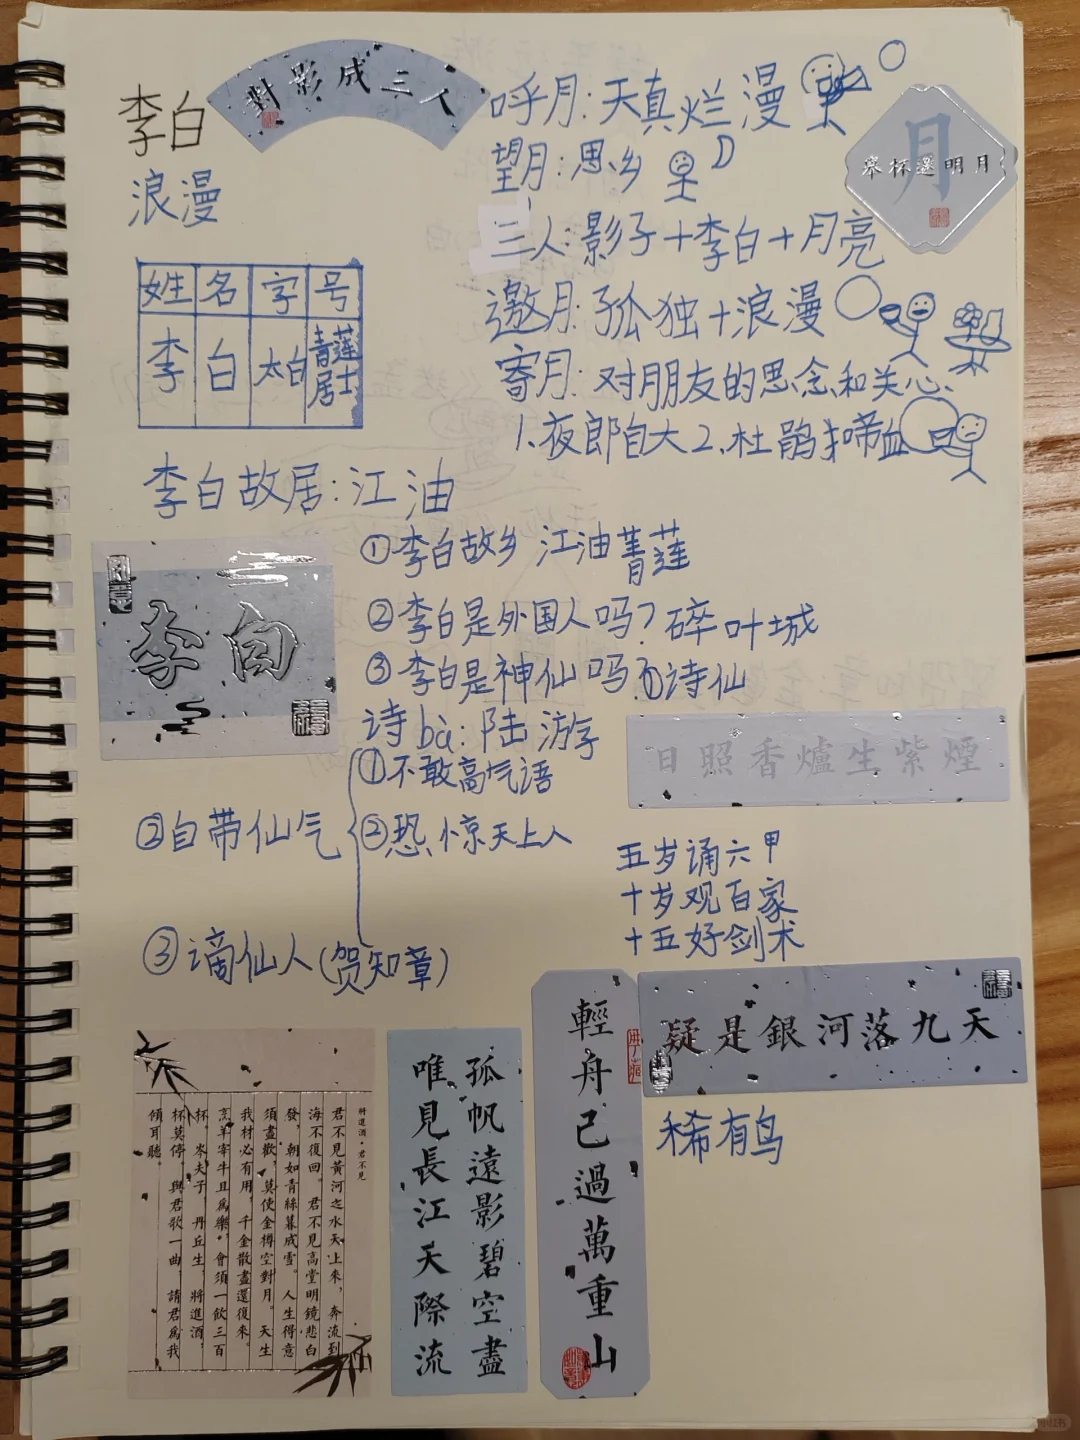 李白
浪漫
對影成三人
呼月:天真烂漫
望月:思乡
三人:影子+李白+月亮
邀月:孤独+浪漫
寄月:对朋友的思念和关心
1.夜郎自大2.杜鹃啼血
月
舉杯邀明月
姓 名 字 号
李 白 太白 青莲居士
李白故居:江油
①李白故乡 江油菁莲
②李白是外国人吗?碎叶城
③李白是神仙吗 ①诗仙
李白
诗bà:陆游
①不敢高气语
②自带仙气
②恐惊天上人
③谪仙人(贺知章)
日照香爐生紫煙
五岁诵六甲
十岁观百家
十五好剑术
疑是銀河落九天
稀有鸟
輕舟已過萬重山
孤帆遠影碧空盡
唯見長江天際流
將進酒·君不見
君不見黃河之水天上來,奔流到
海不復回。君不見高堂明鏡悲白
發,朝如青絲暮成雪。人生得意
須盡歡,莫使金樽空對月。天生
我材必有用,千金散盡還復來。
烹羊宰牛且爲樂,會須一飲三百
杯。岑夫子,丹丘生,將進酒,
杯莫停。與君歌一曲,請君爲我
傾耳聽。